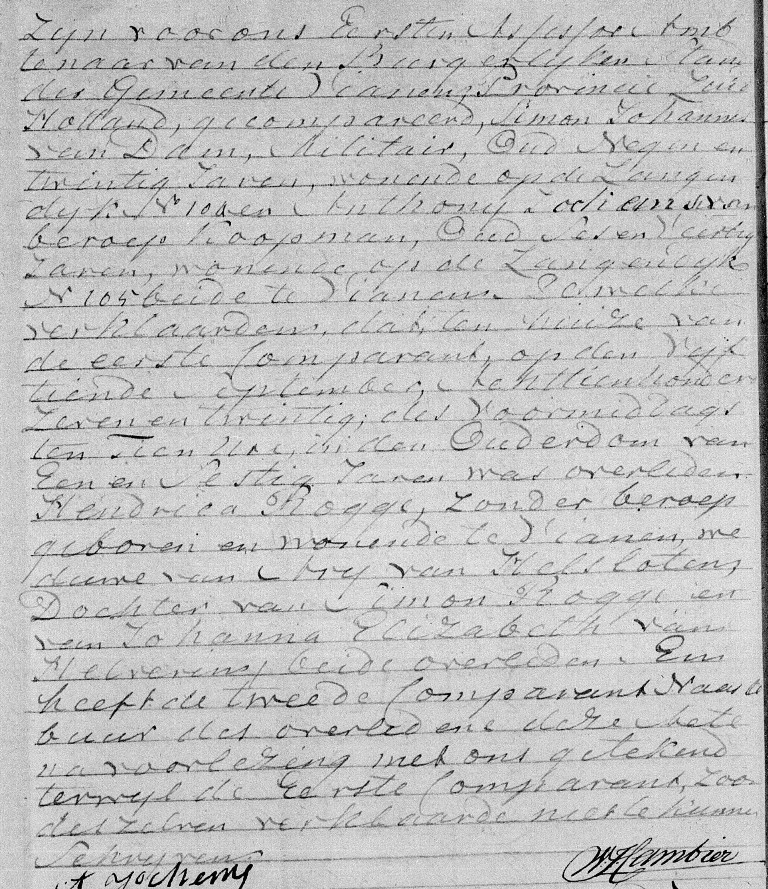 Zyn voor ons Eersten Assessor Amb
tenaar van den Burgerlyken Stand
der Gemeente Vianen, Provincie Zuid
Holland, gecompareerd, Simon Johannes
van Dam, Militair, Oud Negen en
twintig Jaren, wonende op de Langen
dyk N 104 en Anthony Jochems van
beroep Koopman, Oud Ses en Veertig
Jaren, wonende op de Langendyk
N 105 beide te Vianen. Dewelke
verklaarden, dat, ten huize van
de eerste Comparant, op den Vyf
tiende September, Achttienhonderd
zeven en twintig, des Voormiddags
ten Tien Ure, in den Ouderdom van
Een en Sestig Jaren was overleden
Hendrica Rogge, zonder beroep
geboren en wonende te Vianen, we
duwe van Ary van Helsloten,
Dochter van Simon Rogge en
van Johanna Elizabeth van
beide overleden. En
heeft de tweede Comparant Naaste
buur des overledene deze Akte
na voorlezing met ons getekend
terwyl de Eerste Comparant, zoon
deszelven verklaarde niet te kunnen
Schryven
A Jochems W Cambier